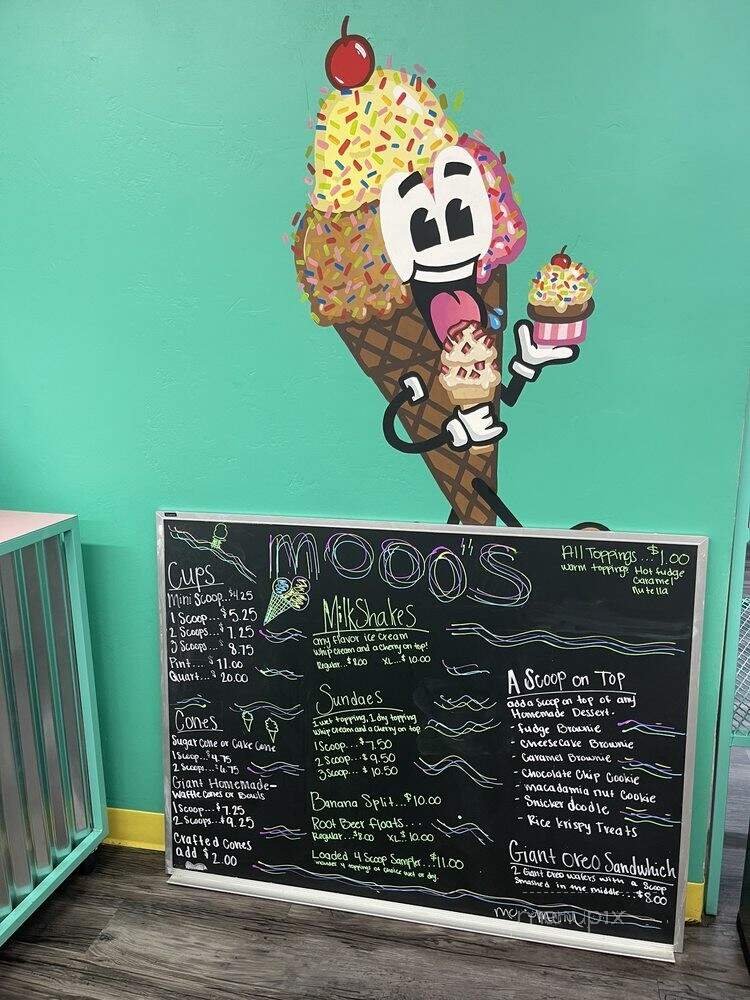 MOOO'S
All Toppings...$1.00
warm toppings Hot fudge
Caramel
Nutella
Cups
Mini Scoop..$4.25
1 Scoop...$5.25
2 Scoops...$7.25
3 Scoops...$8.75
Pint...$11.00
Quart...$20.00
Cones
Sugar Cone or Cake Cone
1 Scoop...$4.75
2 Scoops...$6.75
Giant Homemade-
Waffle Cones or Bowls
1 Scoop...$7.25
2 Scoops...$9.25
Crafted Cones
add $2.00
MilkShakes
any flavor ice cream
whip cream and a cherry on top!
Regular...$8.00 XL...$10.00
Sundaes
1 wet topping, 1 dry topping
whip cream and a cherry on top
1 Scoop...$7.50
2 Scoop...$9.50
3 Scoop...$10.50
Banana Split...$10.00
Root Beer floats....
Regular...$8.00 XL.$10.00
Loaded 4 Scoop Sampler..$11.00
4 toppings of choice wet or dry.
A Scoop on Top
add a scoop on top of any
Homemade Dessert.
- fudge Brownie
- Cheesecake Brownie
- Caramel Brownie
- Chocolate Chip Cookie
- macadamia nut Cookie
- Snickerdoodle
- Rice Krispy Treats
Giant Oreo Sandwhich
2 Giant Oreo wafers with a Scoop
Smashed in the middle....$8.00